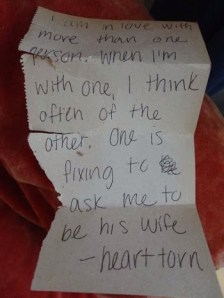 I am in love with
more than one
person. When I'm
with one, I think
often of the
other. One is
fixing to
ask me to
be his wife
- heart torn